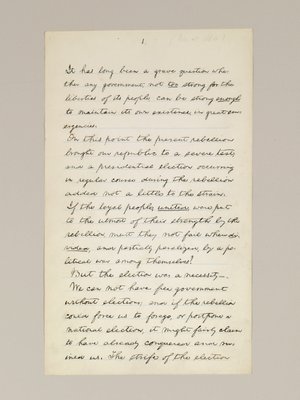 1.
It has long been a grave question whe-
ther any government, not too strong for the
liberties of its people, can be strong enough
to maintain its own existence, in great em-
ergencies.
On this point the present rebellion
brought our republic to a severe test;
and a presidential election occurring
in regular course during the rebellion
added not a little to the strain.
If the loyal people, united, were put
to the utmost of their strength by the
rebellion, must they not fail when di-
vided, and partially paralized, by a po-
litical war among themselves?
But the election was a necessity—.
We can not have free government
without elections; and if the rebellion
could force us to forego, or postpone a
national election, it might fairly claim
to have already conquered and ru-
ined us. The strife of the election